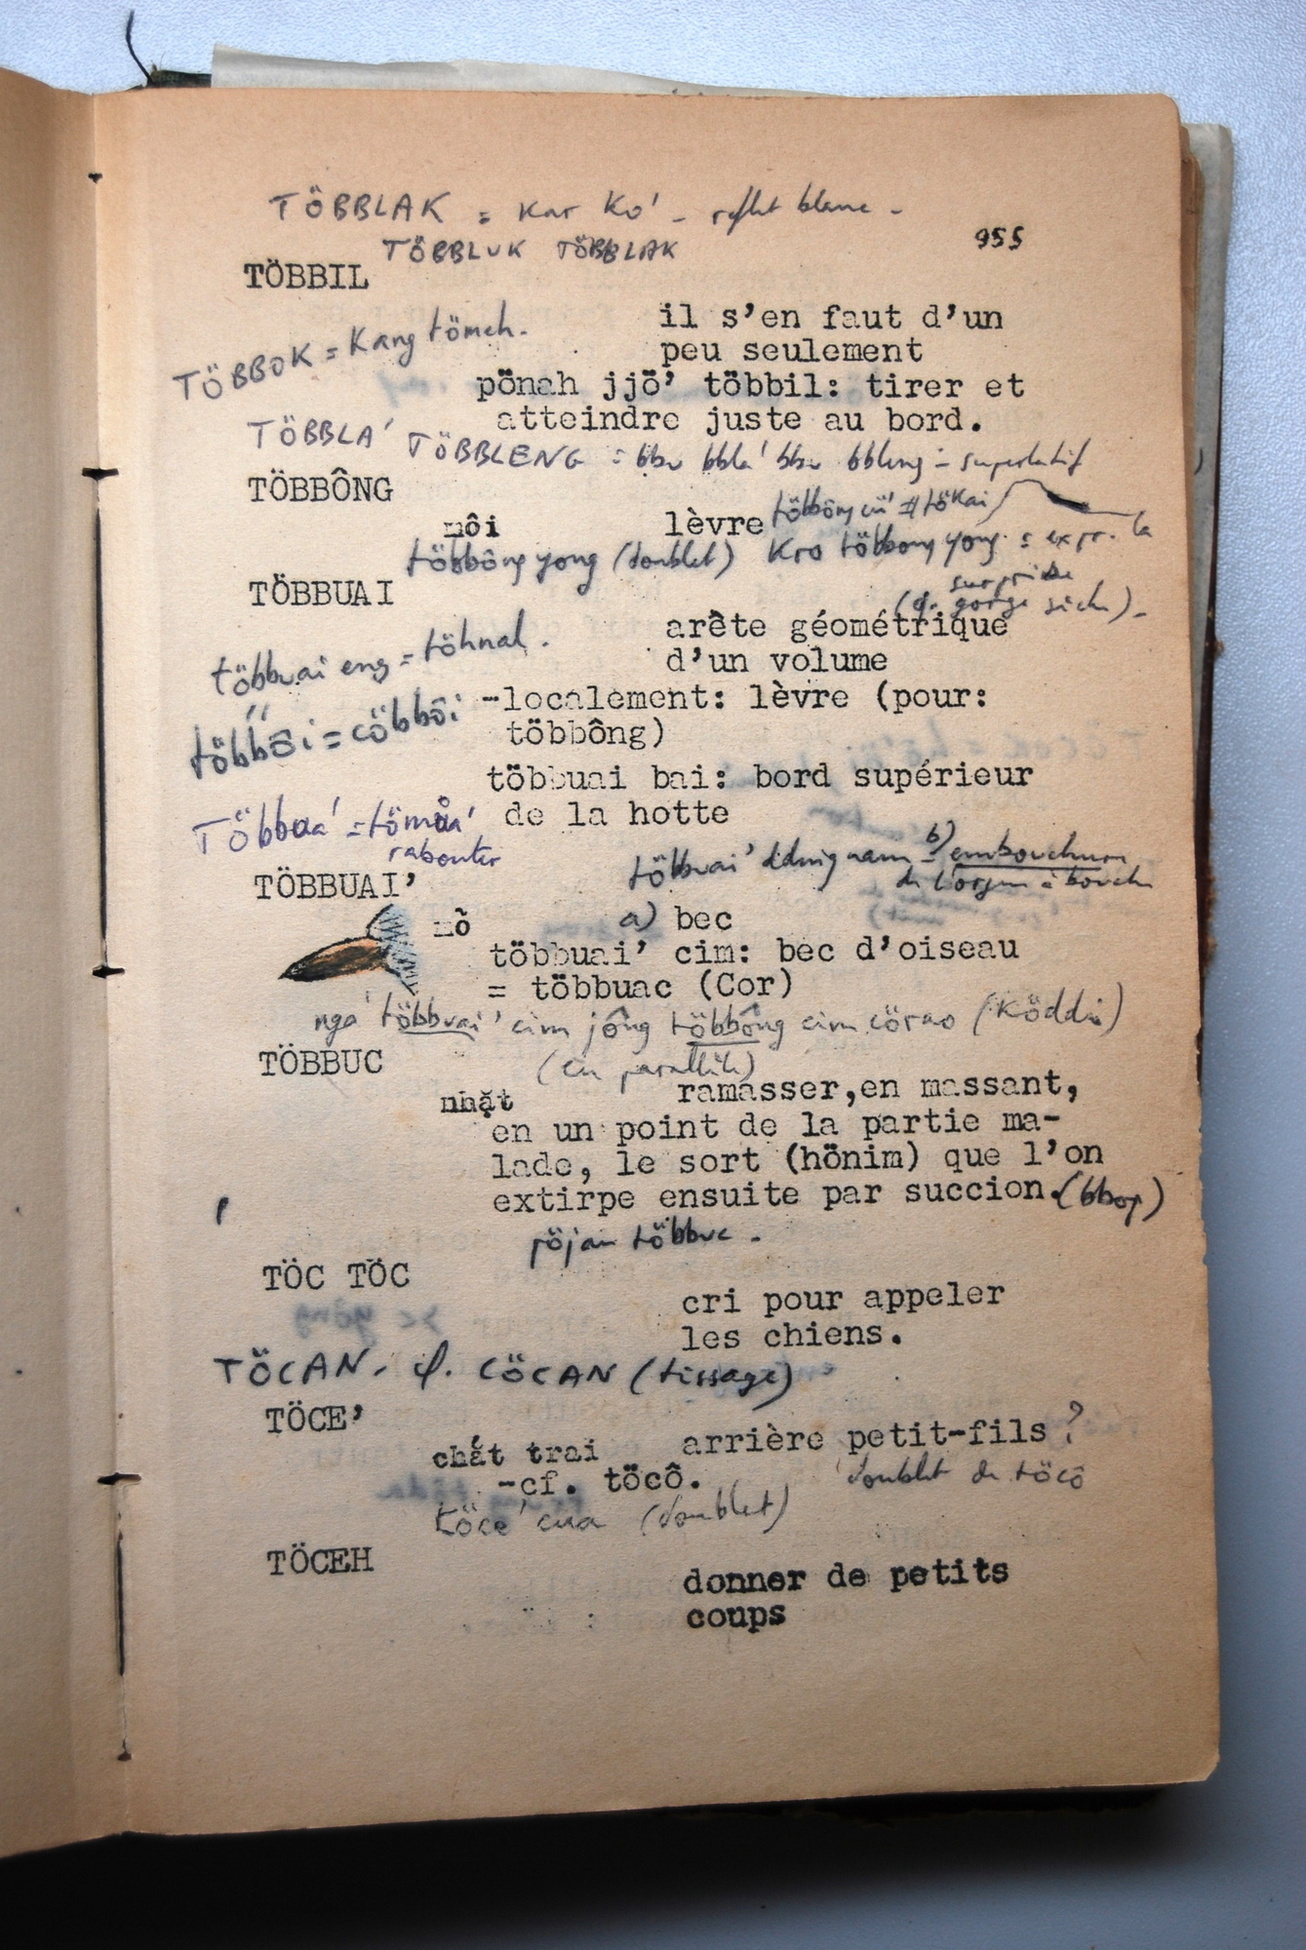 TÖBBLAK = Kar Ko' - reflet blanc -
TÖBBLUK TÖBBLAK
955
TÖBBIL
il s'en faut d'un
peu seulement
TÖBBOK = Kang tömeh.
pönah jjö' többil: tirer et
atteindre juste au bord.
TÖBBLA' TÖBBLENG = bbu bbla' bbu bbleng = superlatif
TÖBBÔNG
môi lèvre
többông yong (doublet) Kro többong yong = expr. la
surprise
(cf. gorge sèche).
TÖBBUAI
arête géométrique
d'un volume
többuai eng = töhnal.
-localement: lèvre (pour:
többông)
többôi = cöbbôi
többuai bai: bord supérieur
de la hotte
Többua' = tömua'
rabouter
többuai' nam = b) embouchure
de l'orgue à bouche
TÖBBUAI'
mỏ a) bec
többuai' cim: bec d'oiseau
= többuac (Cor)
nga' többuai' cim jông többông cim cörao (Köddi)
(en parallèle)
TÖBBUC
nhặt ramasser,en massant,
en un point de la partie ma-
lade, le sort (hönim) que l'on
extirpe ensuite par succion.(bbop)
pöjau többuc -
TÖC TÖC
cri pour appeler
les chiens.
TÖCAN. cf. CÖCAN (tissage)
TÖCE'
chắt trai arrière petit-fils ?
-cf. töcô. doublet de töcô
töce' cua (doublet)
TÖCEH
donner de petits
coups